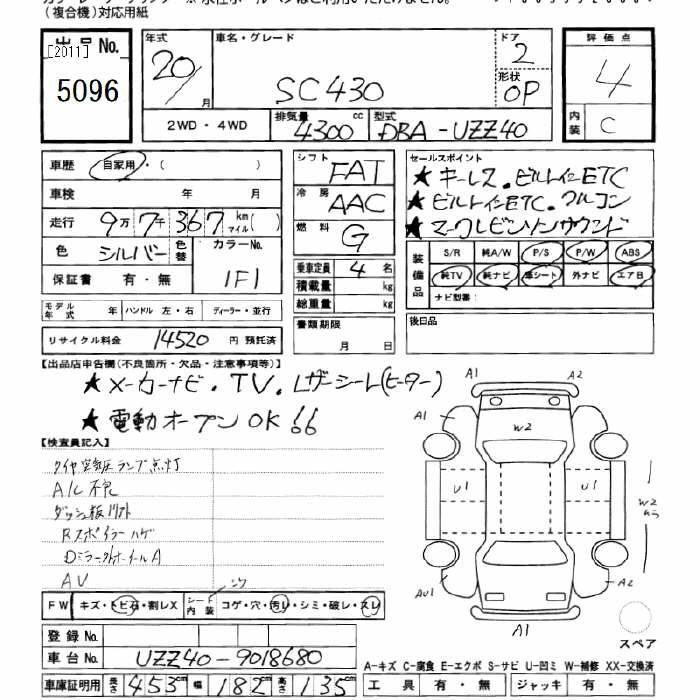 (複合機)対応用紙
出品No.
[2011]
5096
年式
20/
月
車名・グレード
SC430
ドア
2
形状
OP
評価点
4
内装
C
2WD・4WD
排気量
4300 cc
型式
DBA-UZZ40
車歴
自家用・( )
車検
年 月
走行
9万7千367 km マイル( )
色
シルバー
色替
カラーNo.
1F1
保証書
有・無
シフト
FAT
冷房
AAC
燃料
G
乗車定員
4名
積載量
kg
総重量
kg
書類期限
月 日
セールスポイント
★キーレス.ビルトインETC
★ビルトインETC.クルコン
★マークレビンソンサウンド
装備品
S/R 純A/W P/S P/W ABS
純TV 純ナビ 革シート 外ナビ エアB
ナビ型番:
後日品
モデル年式 年 ハンドル 左・右 ディーラー・並行
リサイクル料金 14520 円 預託済
【出品店申告欄(不良箇所・欠品・注意事項等)】
★メーカーナビ・TV.Lザーシート(ヒーター)
★電動オープンOK!!
【検査員記入】
タイヤ空気圧ランプ点灯
A/C不良
ダッシュ板リフト
Rスポイラーハゲ
DミラーホイールA
AV
FW キズ・トビ石・割レX
シート内装 コゲ・穴・汚レ・シミ・破レ・スレ
登録No.
車台No.
UZZ40-9018680
車庫証明用 長さ 453cm 幅 182cm 高さ 135cm
A1
A2
A1
W2
U1
U1
W2
AU1
A2
A1
スペア
A-キズ C-腐食 E-エクボ S-サビ U-凹ミ W-補修 XX-交換済
工具 有・無 ジャッキ 有・無